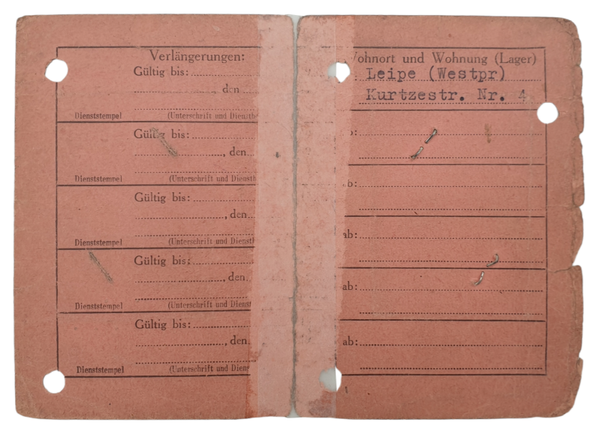 Verlängerungen:
Gültig bis:
, den
Dienststempel (Unterschrift und Dienst
Gültig bis:
, den
Dienststempel (Unterschrift und Dienst
Gültig bis:
, den
Dienststempel (Unterschrift und Dienst
Gültig bis:
, den
Dienststempel (Unterschrift und Dienst
Gültig bis:
, den
Dienststempel (Unterschrift und Dienst
ohnort und Wohnung (Lager)
Leipe (Westpr)
Kurtzestr. Nr. 4
b:
ab:
ab:
ab:
ab: